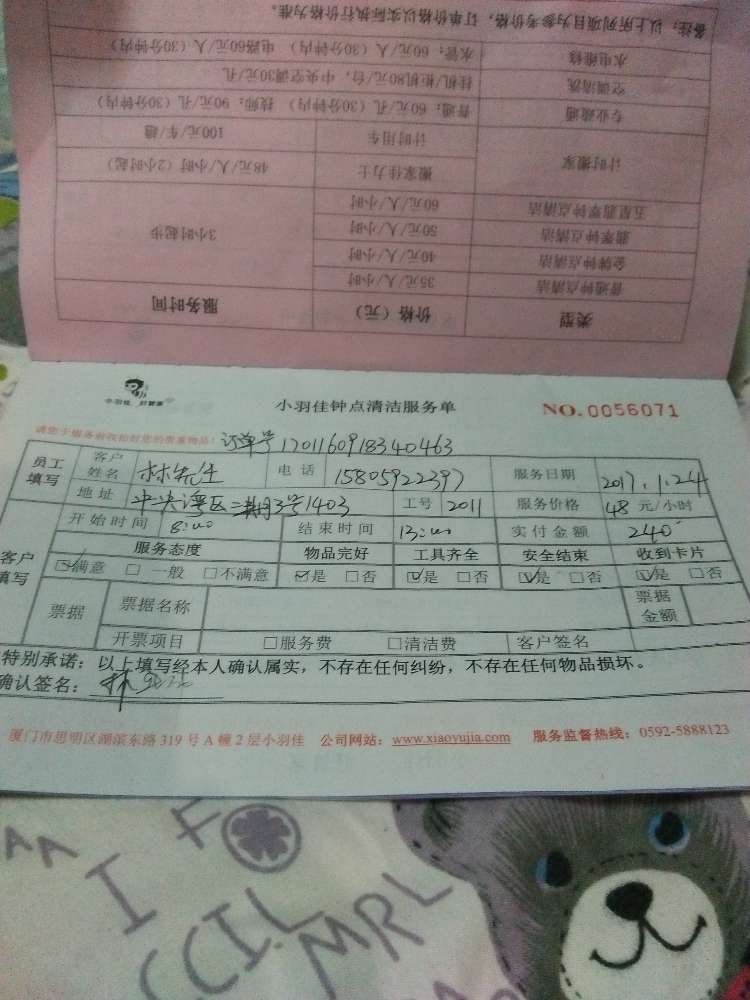 备注：以上所列项目为参考价格，订单价格以实际执行价格为准。
水电维修 水管：60元/人（30分钟内） 电路60元/人（30分钟内）
空调清洗 挂机/柜机80元/台，中央空调30元/孔
专业疏通 普通：60元/孔（30分钟内） 技师：90元/孔（30分钟内）
计时搬家 计时用车 100元/车/趟
搬家佳力士 48元/人/小时（2小时起）
五星翡翠钟点清洁 60元/人/小时 3小时起步
翡翠钟点清洁 50元/人/小时
金牌钟点清洁 40元/人/小时
普通钟点清洁 35元/人/小时
类型 价格（元） 服务时间
小羽佳 好管家
小羽佳钟点清洁服务单 NO.0056071
请您于服务前收拾好您的贵重物品！ 订单号1701160918340463
员工填写 客户姓名 林先生 电话 15805922397 服务日期 2017.1.24
地址 中央湾区二期3号1403 工号 2011 服务价格 48 元/小时
客户填写 开始时间 8:00 结束时间 13:00 实付金额 240
服务态度 物品完好 工具齐全 安全结束 收到卡片
☑满意 □一般 □不满意 ☑是 □否 ☑是 □否 ☑是 □否 ☑是 □否
票据 票据名称 票据金额
开票项目 □服务费 □清洁费 客户签名
特别承诺：以上填写经本人确认属实，不存在任何纠纷，不存在任何物品损坏。
确认签名：林
厦门市思明区湖滨东路319号A幢2层小羽佳 公司网站：www.xiaoyujia.com 服务监督热线：0592-5888123
I F
CCIL MRL